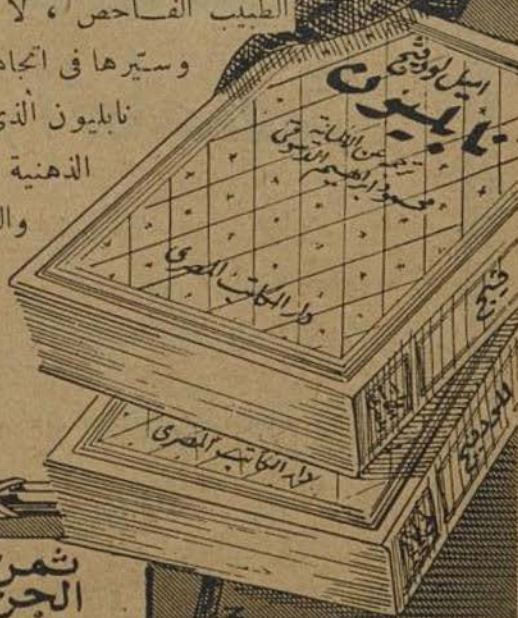 الطبيب الفاحص ، لا
وستيرها فى اتجاه
نابليون ألذى
الذهنية
وال
اميل لودفيج
نابليون
ترجمه عن الألمانية
محمود ابراهيم الدسوقى
دار الكاتب المصرى
دار الكاتب المصرى
لودفيج
ثمن
الجز